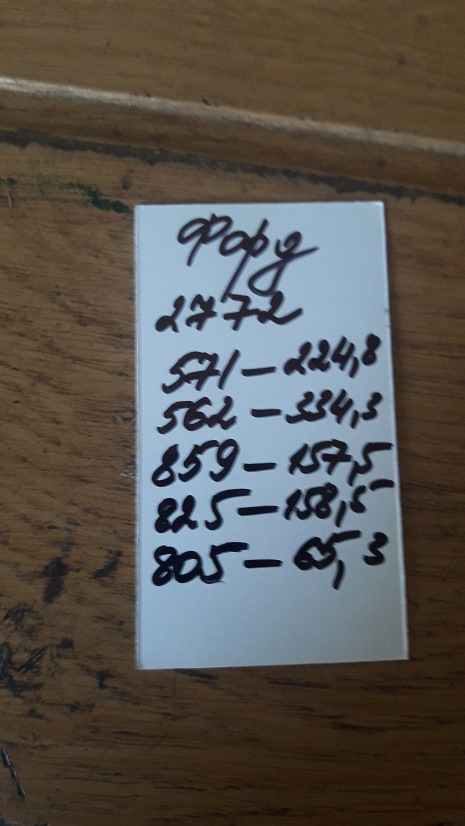 Форд
2772
571-224,8
562-334,3
859-157,5
825-158,5
805-65,3